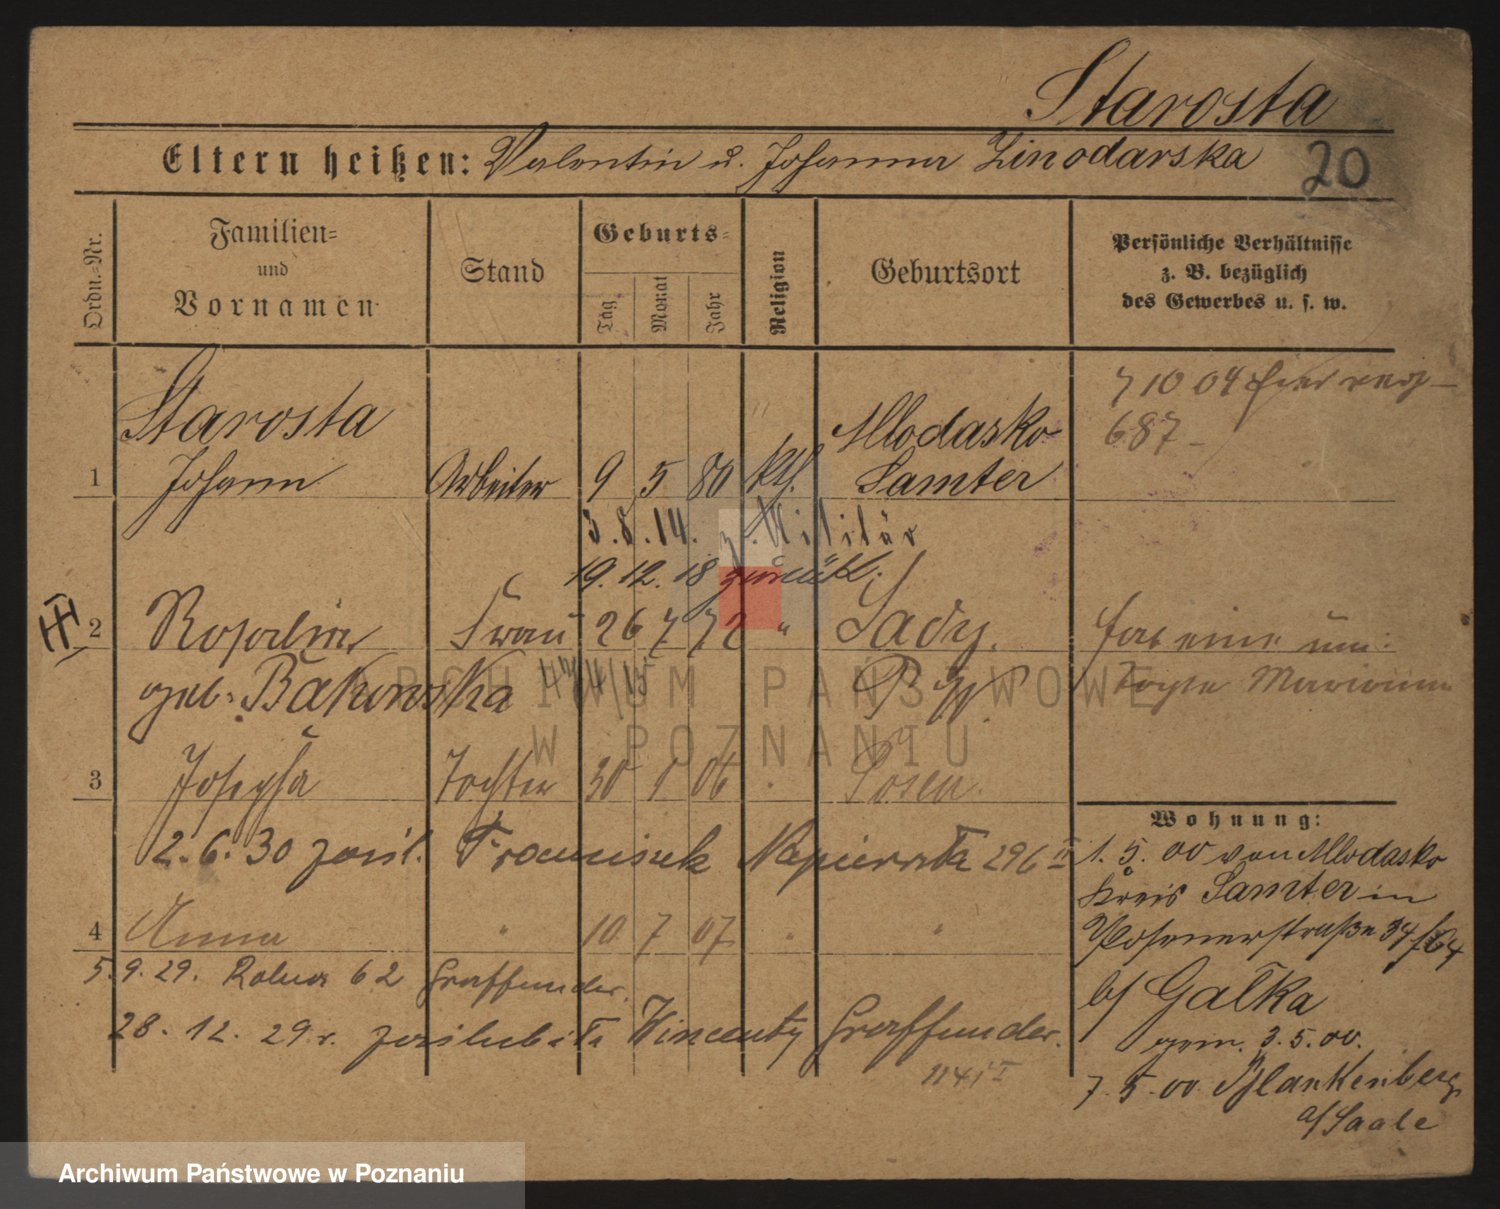 Starosta
Eltern heißen: Valentin u. Johanna Zinodarska 20
Ordn.-Nr.
Familien-
und
Vornamen
Stand
Geburts-
Tag
Monat
Jahr
Religion
Geburtsort
Persönliche Verhältnisse
z. B. bezüglich
des Gewerbes u. s. w.
7 10 04
687
Starosta
1 Johann Arbeiter 9 5 80 kth. Mlodasko
Samter
3.8.14. z. Militär
19.12.18 zurück.
2 Frau 26 7 72 "
geb. Bakowska
3 Josepha Tochter 30 1 06 Posen
2.6.30 zasl. Franciszek 296 II
4 Anna " 10 7 07 " "
5.9.29. 62 Graffunder.
28. 12. 29 r. zaślubiła Wincenty Graffunder.
1141 I
Wohnung:
1. 5. 00 von Mlodasko
Kreis Samter in
Posenerstraße 34
b/ Gałka
gem. 3.5.00.
7. 5. 00 Blankenberg
a/Saale
ARCHIWUM PAŃSTWOWE
W POZNANIU
Archiwum Państwowe w Poznaniu